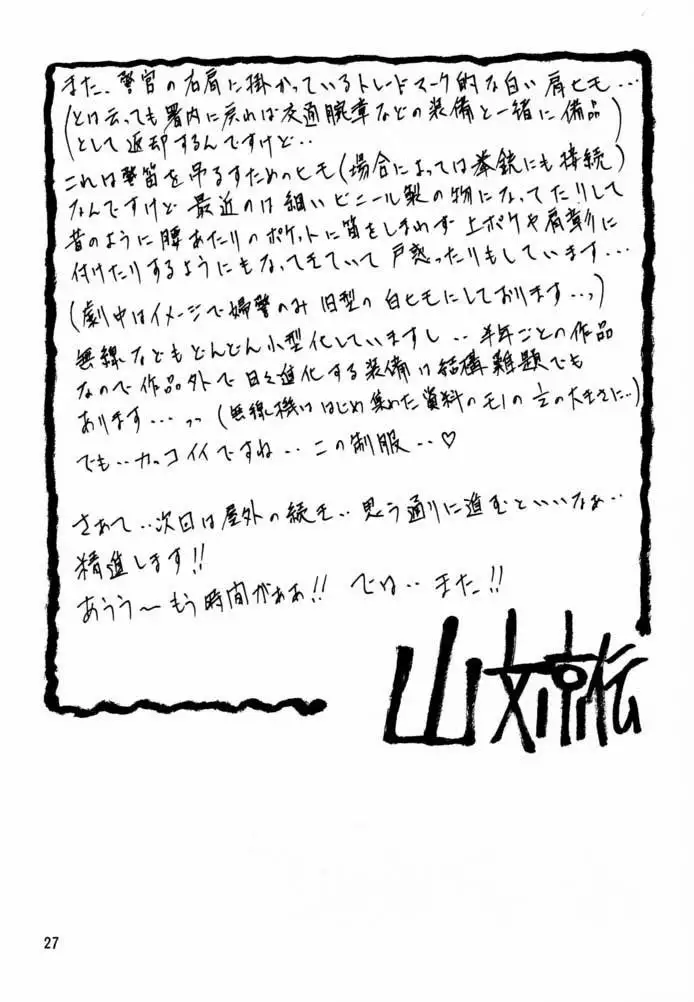 また、警官の右肩に掛かっているトレードマーク的な白い肩ヒモ…
(とは云っても署内に戻れば交通腕章などの装備と一緒に備品
として返却するんですけど‥)
これは警笛を吊るすためのヒモ(場合によっては拳銃にも接続)
なんですけど最近のは細いビニール製の物になってたりして
昔のように腰あたりのポケットに笛をしまわず上ポケや肩章に
付けたりするようにもなってきていて戸惑ったりもしています…
(劇中はイメージで婦警のみ旧型の白ヒモにしております‥っ)
無線などもどんどん小型化していますし‥半年ごとの作品
なので作品外で日々進化する装備は結構難題でも
あります…っっ(無線機ははじめ集めた資料のモノの½の大きさに‥)
でも‥カッコイイですね‥この制服‥♡
さあて‥次回は屋外の続き‥思う通りに進むといいなぁ‥
精進します!!
あうう〜もう時間がああ!! では‥また!!
山文京伝
27